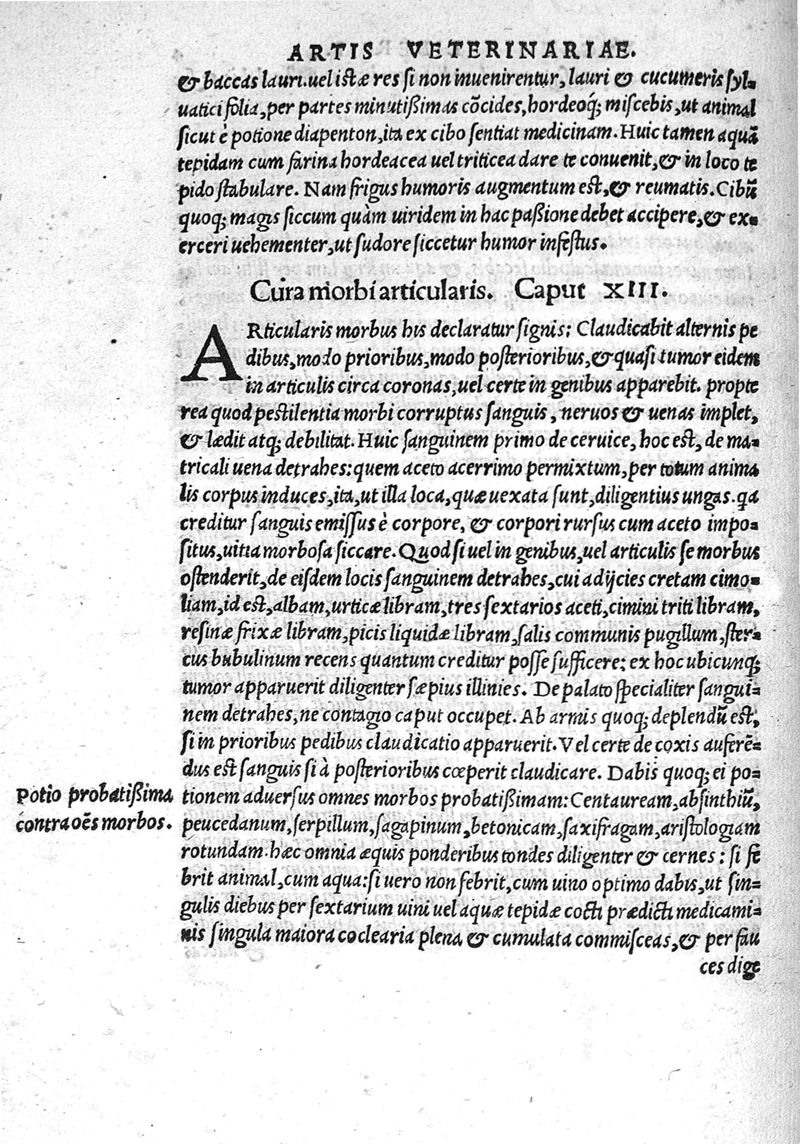 ARTIS VETERINARIAE.
& baccas lauri. uel istæ res si non inuenirentur, lauri & cucumeris syl-
uatici folia, per partes minutißimas cōcides, hordeoq; miscebis, ut animal
sicut è potione diapenton, ita ex cibo sentiat medicinam. Huic tamen aquā
tepidam cum farina hordeacea uel triticea dare te conuenit, & in loco te
pido stabulare. Nam frigus humoris augmentum est, & reumatis. Cibū
quoq; magis siccum quàm uiridem in hac paßione debet accipere, & ex-
erceri uehementer, ut sudore siccetur humor infestus.
Cura morbi articularis. Caput XIII.
ARticularis morbus his declaratur signis: Claudicabit alternis pe
dibus, modo prioribus, modo posterioribus, & quasi tumor eidem
in articulis circa coronas, uel certe in genibus apparebit. propte
rea quod pestilentia morbi corruptus sanguis, neruos & uenas implet,
& lædit atq; debilitat. Huic sanguinem primo de ceruice, hoc est, de ma-
tricali uena detrahes: quem aceto acerrimo permixtum, per totum anima
lis corpus induces, ita, ut illa loca, quæ uexata sunt, diligentius ungas. qa
creditur sanguis emissus è corpore, & corpori rursus cum aceto impo-
situs, uitia morbosa siccare. Quod si uel in genibus, uel articulis se morbus
ostenderit, de eisdem locis sanguinem detrahes, cui adijcies cretam cimo-
liam, id est, albam, urticæ libram, tres sextarios aceti, cimini triti libram,
resinæ frixæ libram, picis liquidæ libram, salis communis pugillum, ster-
cus bubulinum recens quantum creditur posse sufficere: ex hoc ubicunq;
tumor apparuerit diligenter sæpius illinies. De palato specialiter sangui-
nem detrahes, ne contagio caput occupet. Ab armis quoq; deplendū est,
si in prioribus pedibus claudicatio apparuerit. Vel certe de coxis auferē-
dus est sanguis si à posterioribus cœperit claudicare. Dabis quoq; ei po-
tionem aduersus omnes morbos probatißimam: Centauream, absinthiū,
peucedanum, serpillum, sagapinum, betonicam, saxifragam, aristologiam
rotundam. hæc omnia æquis ponderibus tondes diligenter & cernes: si fe
brit animal, cum aqua: si uero non febrit, cum uino optimo dabis, ut sin-
gulis diebus per sextarium uini uel aquæ tepidæ cocti prædicti medicami-
nis singula maiora coclearia plena & cumulata commisceas, & per fau
ces dige
Potio probatißima
contra oēs morbos.